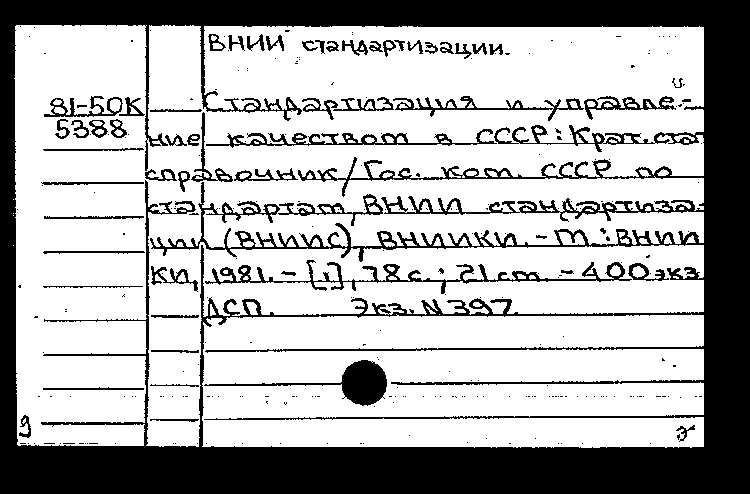 ВНИИ стандартизации.
81-50К Стандартизация и управле-
5388 ние качеством в СССР: Крат. стат
справочник/Гос. ком. СССР по
стандартам, ВНИИ стандартиза-
ции (ВНИИС), ВНИИКИ. - М.: ВНИИ
КИ, 1981. - [1], 78 с.; 21 cm. - 400 экз
ДСП. Экз. N 397.
9